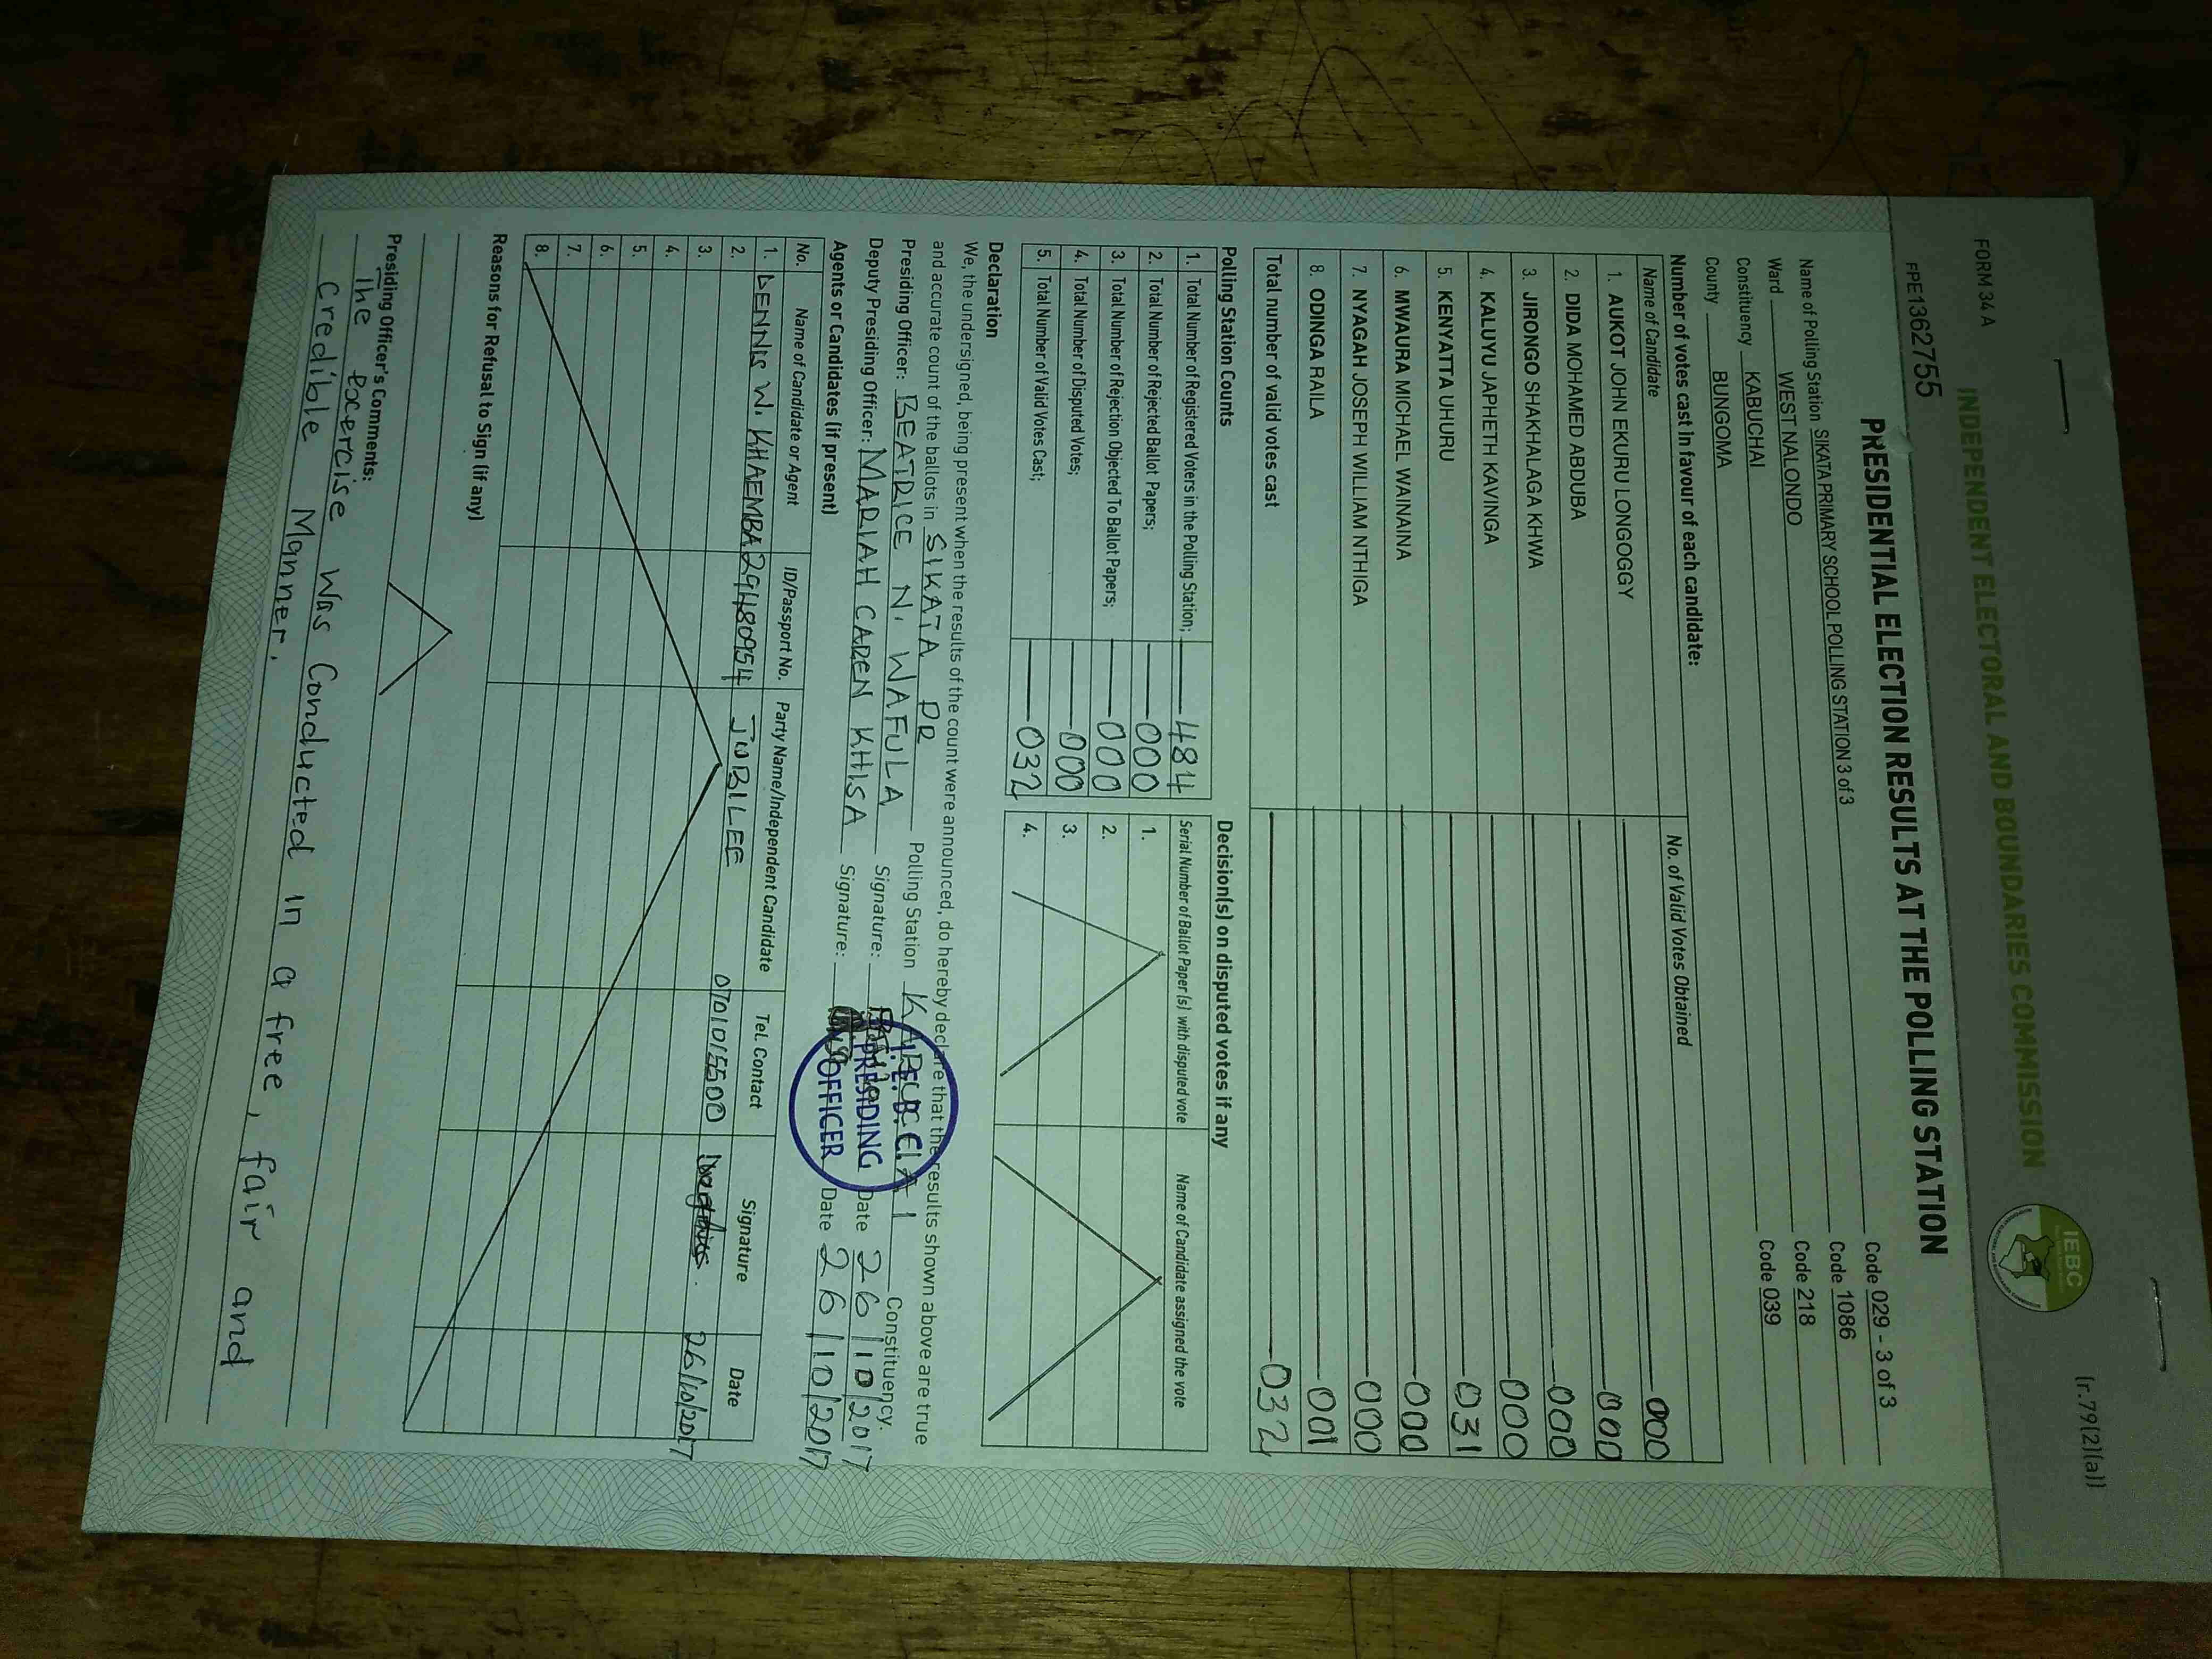 FORM 34 A
(r.79(2)(a))
INDEPENDENT ELECTORAL AND BOUNDARIES COMMISSION
IEBC
FPE1362755
PRESIDENTIAL ELECTION RESULTS AT THE POLLING STATION
Name of Polling Station SIKATA PRIMARY SCHOOL POLLING STATION 3 of 3 Code 029 - 3 of 3
Ward WEST NALONDO Code 1086
Constituency KABUCHAI Code 218
County BUNGOMA Code 039
Number of votes cast in favour of each candidate:
Name of Candidate No. of Valid Votes Obtained
1. AUKOT JOHN EKURU LONGOGGY 000
2. DIDA MOHAMED ABDUBA 000
3. JIRONGO SHAKHALAGA KHWA 000
4. KALUYU JAPHETH KAVINGA 000
5. KENYATTA UHURU 031
6. MWAURA MICHAEL WAINAINA 000
7. NYAGAH JOSEPH WILLIAM NTHIGA 000
8. ODINGA RAILA 001
Total number of valid votes cast 032
Polling Station Counts
1. Total Number of Registered Voters in the Polling Station; 484
2. Total Number of Rejected Ballot Papers; 000
3. Total Number of Rejection Objected To Ballot Papers; 000
4. Total Number of Disputed Votes; 000
5. Total Number of Valid Votes Cast; 032
Decision(s) on disputed votes if any
Serial Number of Ballot Paper (s) with disputed vote Name of Candidate assigned the vote
1.
2.
3.
4.
Declaration
We, the undersigned, being present when the results of the count were announced, do hereby declare that the results shown above are true
and accurate count of the ballots in SIKATA PR Polling Station KABUCHAI Constituency.
Presiding Officer: BEATRICE N. WAFULA Signature: Date 26/10/2017
Deputy Presiding Officer: MARIAH CAREN KHISA Signature: Date 26/10/2017
I.E.B.C
PRESIDING
OFFICER
Agents or Candidates (if present)
No. Name of Candidate or Agent ID/Passport No. Party Name/Independent Candidate Tel. Contact Signature Date
1. DENNIS W. KHAEMBA 29480954 JUBILEE 0701015500 26/10/2017
2.
3.
4.
5.
6.
7.
8.
Reasons for Refusal to Sign (if any)
Presiding Officer's Comments:
The excercise was Conducted in a free, fair and
credible Manner.